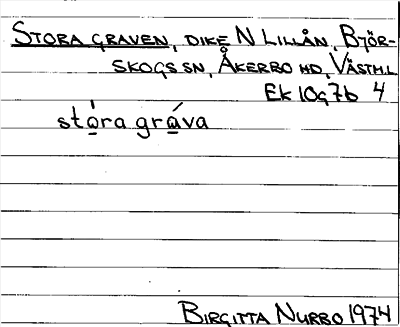 STORA GRAVEN, DIKE N LILLÅN, BJÖR-
SKOGS SN, ÅKERBO HD, VÄSTM.L
EK 10G7b 4
sto̲̍ra gra̲̍va
BIRGITTA NURBO 1974